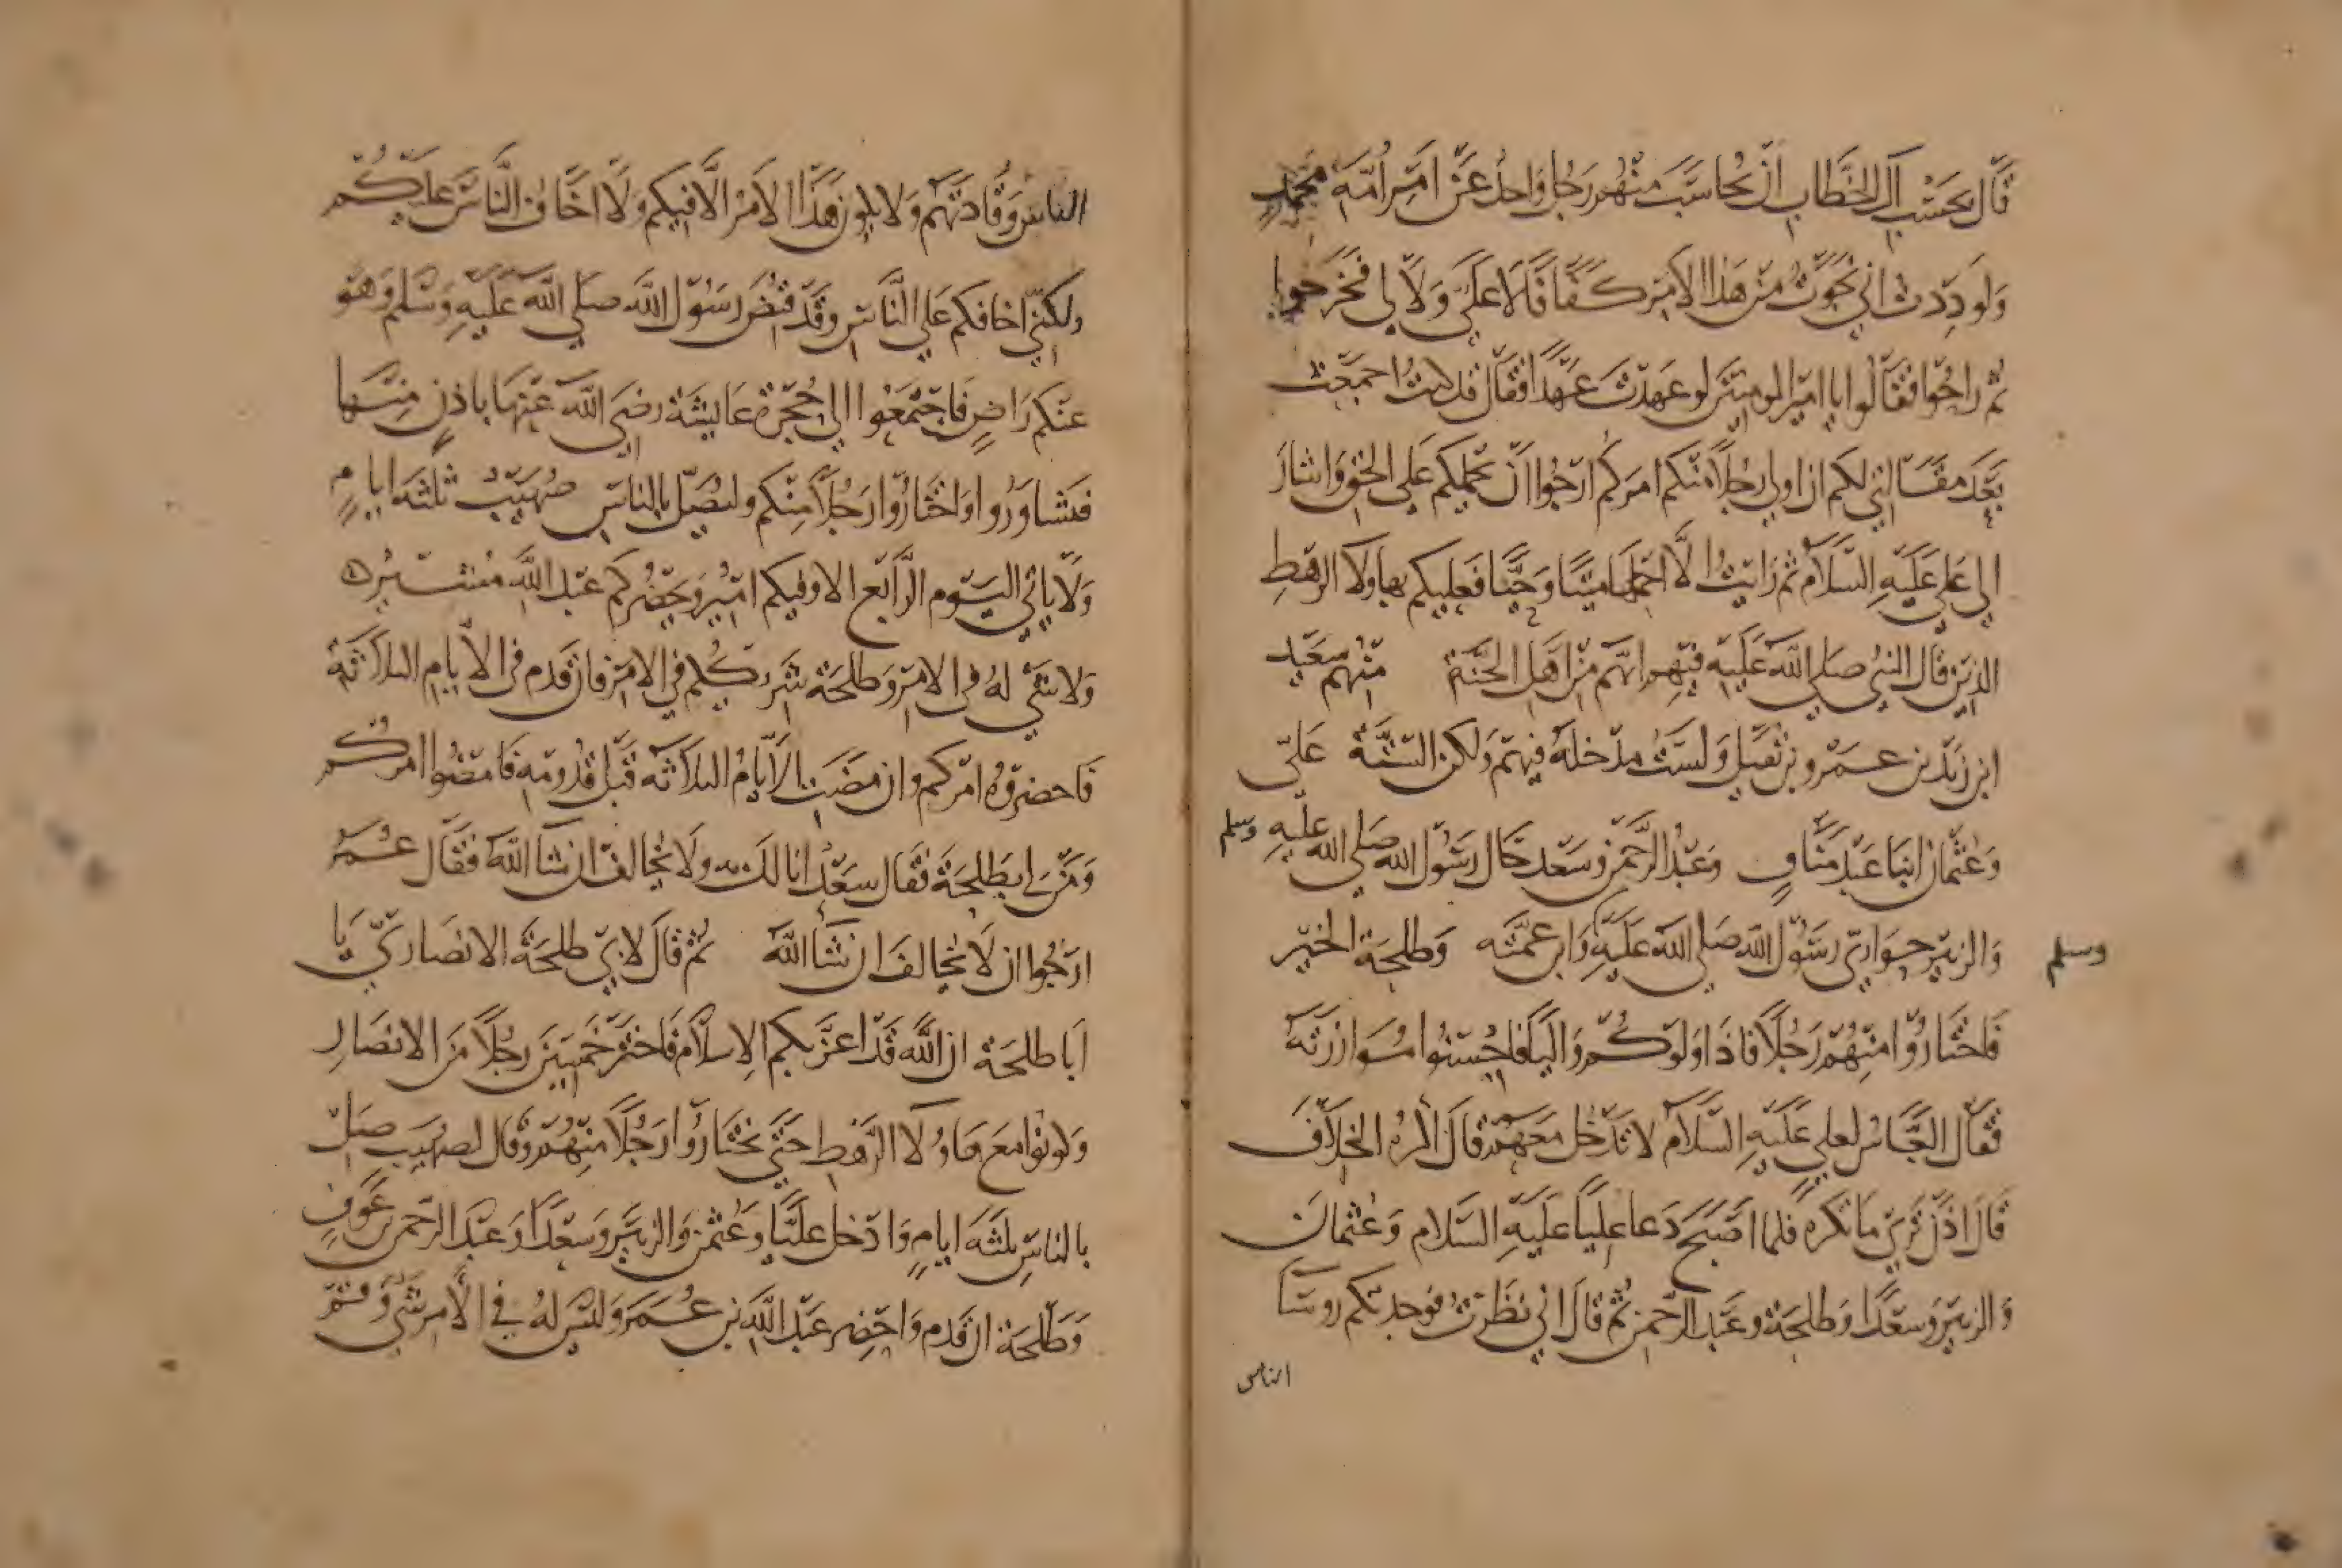 قال بحسب آل الخطاب ان يحاسب منهم رجل واحد عن امر امة محمد
ولو وددت اني نجوت من هذا الامر كفافا لا علي ولا لي فخرجوا
ثم راحوا فقالوا يا امير المومنين لو عهدت عهدا فقال قد كنت اجمعت
بعد مقالتي لكم ان اولي رجلا منكم امركم ارجوا ان يحملكم على الحق واشار
الى علي عليه السلام ثم رايت الا اتحملها ميتا وحيا فعليكم بهاولا الرهط
الذين قال النبي صلى الله عليه فيهم انهم من اهل الجنة منهم سعيد
ابن زيد بن عمرو بن نفيل ولست مدخله فيهم ولكن الستة علي
وعثمان ابنا عبد مناف وعبد الرحمن وسعد خال رسول الله صلى الله عليه وسلم
والزبير حواري رسول الله صلى الله عليه وابن عمته وطلحة الخير
وسلم
فاختاروا منهم رجلا فاذا ولوكم واليا فاحسنوا موازرته
فقال العباس لعلي عليه السلام لا تدخل معهم قال اكره الخلاف
قال اذن ترى ما تكره فلما اصبح دعا عليا عليه السلام وعثمان
والزبير وسعدا وطلحة وعبد الرحمن ثم قال اني نظرت فوجدتكم روسا
الناس
الناس وقادتهم ولا يكون هذا الامر الا فيكم ولا اخاف الناس عليكم
ولكني اخافكم على الناس وقد قبض رسول الله صلى الله عليه وسلم وهو
عنكم راض فاجتمعوا الى حجرة عايشة رضي الله عنها باذن منها
فتشاوروا واختاروا رجلا منكم وليصل بالناس صهيب ثلثة ايام
ولا ياتي اليوم الرابع الا وفيكم امير ويحضركم عبد الله مشير
ولا شي له في الامر وطلحة شريككم في الامر فان قدم في الايام الثلاثة
فاحضروه امركم وان مضت الايام الثلاثة قبل قدومه فامضوا امركم
ومن لي بطلحة فقال سعد انا لك به ولا يخالف ان شا الله فقال عمر
ارجوا ان لا يخالف ان شا الله ثم قال لابي طلحة الانصاري يا
ابا طلحة ان الله قد اعز بكم الاسلام فاختر خمسين رجلا من الانصار
وكونوا مع هاولا الرهط حتى يختاروا رجلا منهم وقال لصهيب صل
بالناس ثلثة ايام وادخل عليا وعثمن والزبير وسعدا وعبد الرحمن بن عوف
وطلحة ان قدم واحضر عبد الله بن عمر وليس له في الامر شي وقم